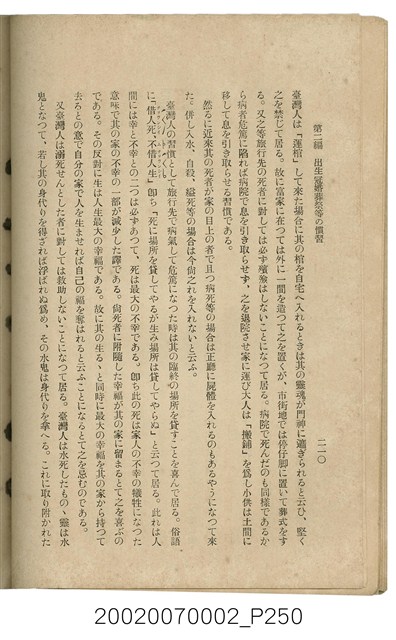 第二編　出生冠婚葬祭等の慣習
二一〇
臺灣人は「運棺」して來た場合に其の棺を自宅へ入れるときは其の靈魂が門神に遮ぎられると云ひ、堅く
之を禁じて居る。故に富家に在つては外に一間を造つて之を置くが、市街地では停仔脚に置いて葬式をす
る。又之等旅行先の死者に對しては必ず殯殮はしないことになつて居る。病院で死んだのも同樣であるか
ら病者危篤に陷れば病院で息を引き取らせず、之を退院させ家に運び大人は「搬鋪」を爲し小供は土間に
移して息を引き取らせる習慣である。
然るに近來其の死者が家の目上の者で且つ病死等の場合は正廳に屍體を入れるのもあるやうになつて來
た。併し入水、自殺、縊死等の場合は今尙之れを入れないと云ふ。
臺灣人の習慣として旅行先で病氣して危篤になつた時は其の臨終の場所を貸すことを喜んで居る。俗語
に「借人死、不借人生」卽ち「死に場所を貸してやるが生み場所は貸してやらぬ」と云つて居る。此れは人
間には幸と不幸との二つは必ずあつて、死は最大の不幸である。卽ち此の死は家人の不幸の犧牲になつた
意味で其の家の不幸の一部が減少した譯である。尙死者に附隨した幸福が其の家に留まるとて之を喜ぶの
である。その反對に生は人生最大の幸福である。故に其の生るゝと同時に最大の幸福を其の家から持つて
去るとの意で自分の家で人を生ませれば自己の福を奪はれると云ふことになるとて之を忌むのである。
又臺灣人は溺死せんとした者に對しては救助しないことになつて居る。臺灣人は水死したものゝ靈は水
鬼となつて、若し其の身代りを得ざれば浮ばれぬ爲め、その水鬼は身代りを拿へる。これに取り附かれた
20020070002_P250